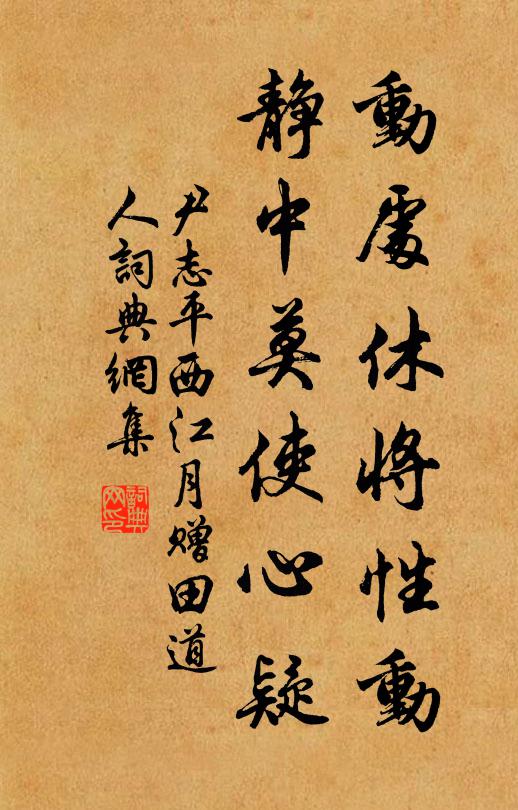 動處休將性動
靜中莫使心疑
尹志平西江月贈田道
人詞典網集
詞典
网印